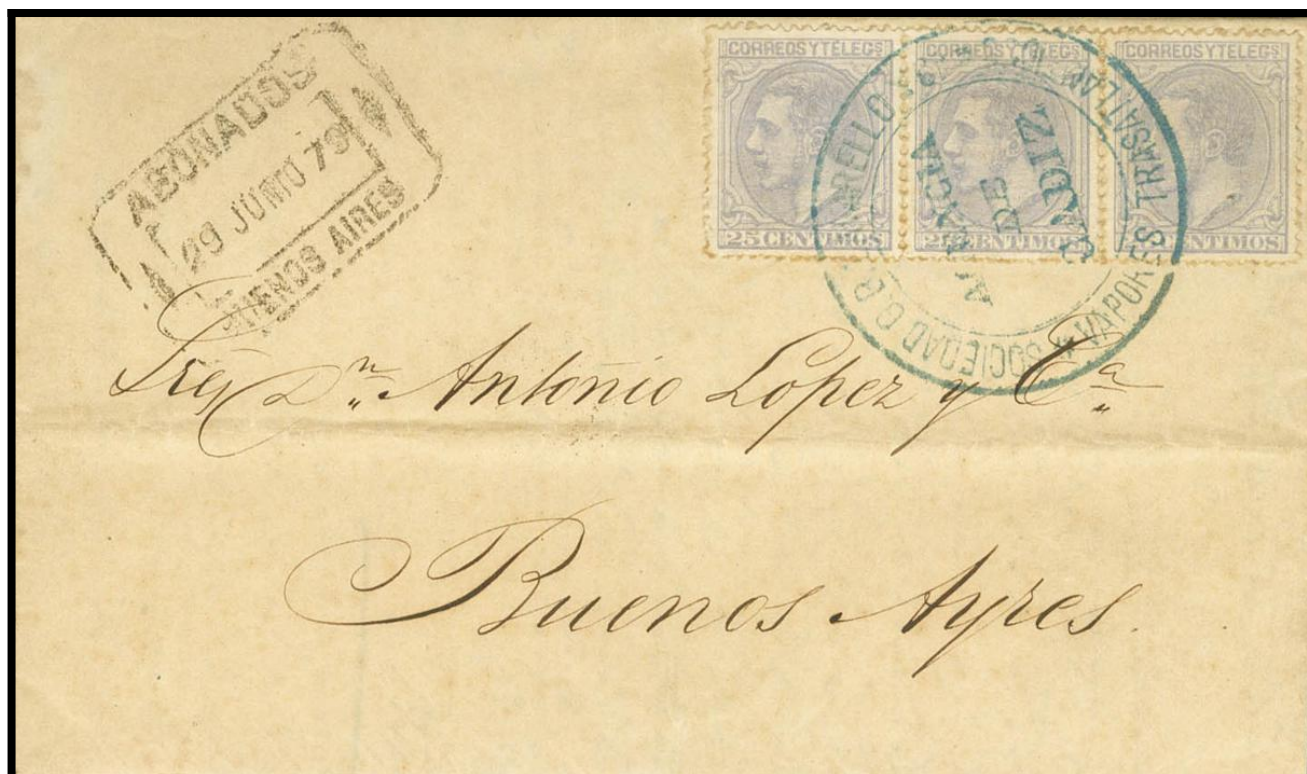 ABONADOS
29 JUNIO 79
BUENOS AIRES
CORREOS Y TELEGS
CORREOS Y TELEGS
CORREOS Y TELEGS
25 CENTIMOS
25 CENTIMOS
CENTIMOS
SOCIEDAD
VAPORES TRASATLAN
AGENCIA
DE
CADIZ
Sres Dn Antonio Lopez y Ca
Buenos Ayres.